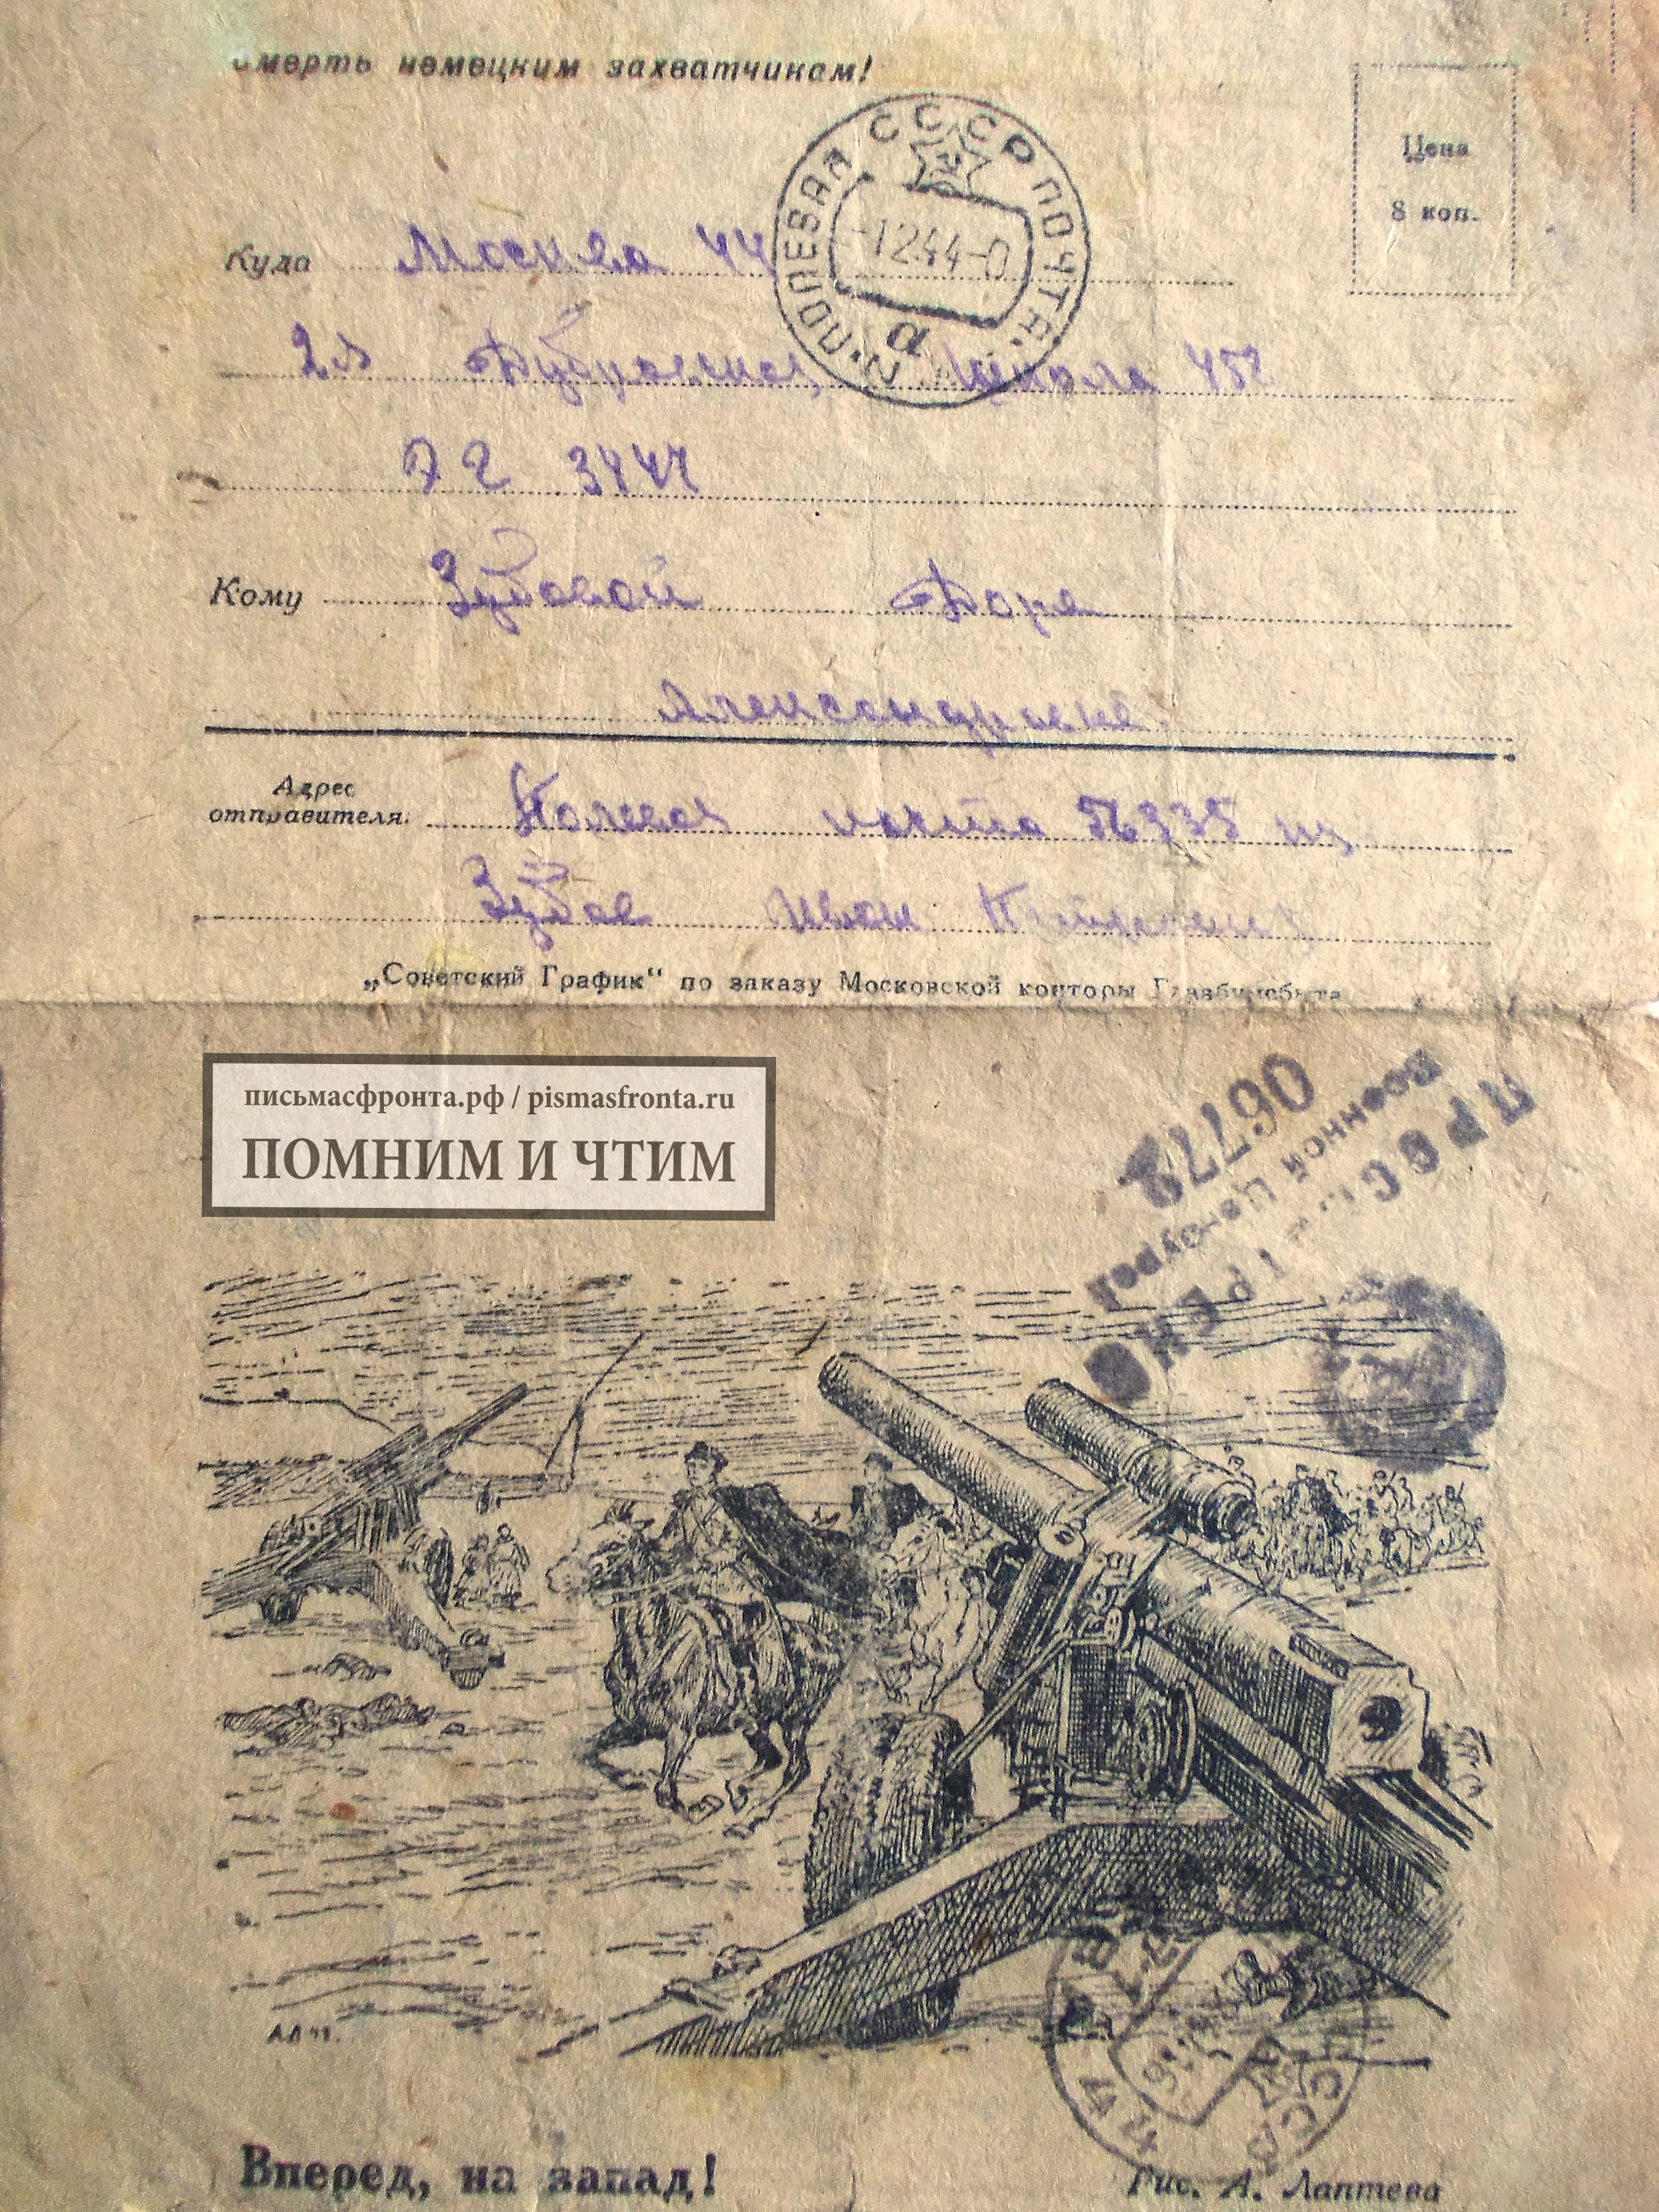 Смерть немецким захватчикам!
Цена
8 коп.
СССР ПОЛЕВАЯ ПОЧТА
-1244-0
а
Куда Москва 44
2я Дубровская, Школа 452
Кому Зубовой Доре
Александровне
Адрес
отправителя: Полевая почта
Зубов Иван
„Советский График“ по заказу Московской конторы Главбумсбыта
письмасфронта.рф / pismasfronta.ru
ПОМНИМ И ЧТИМ
ПРОСМОТРЕНО
Военной Цензурой
06778
МОСКВА
СССР
Вперед, на запад!
Рис. А. Лаптева